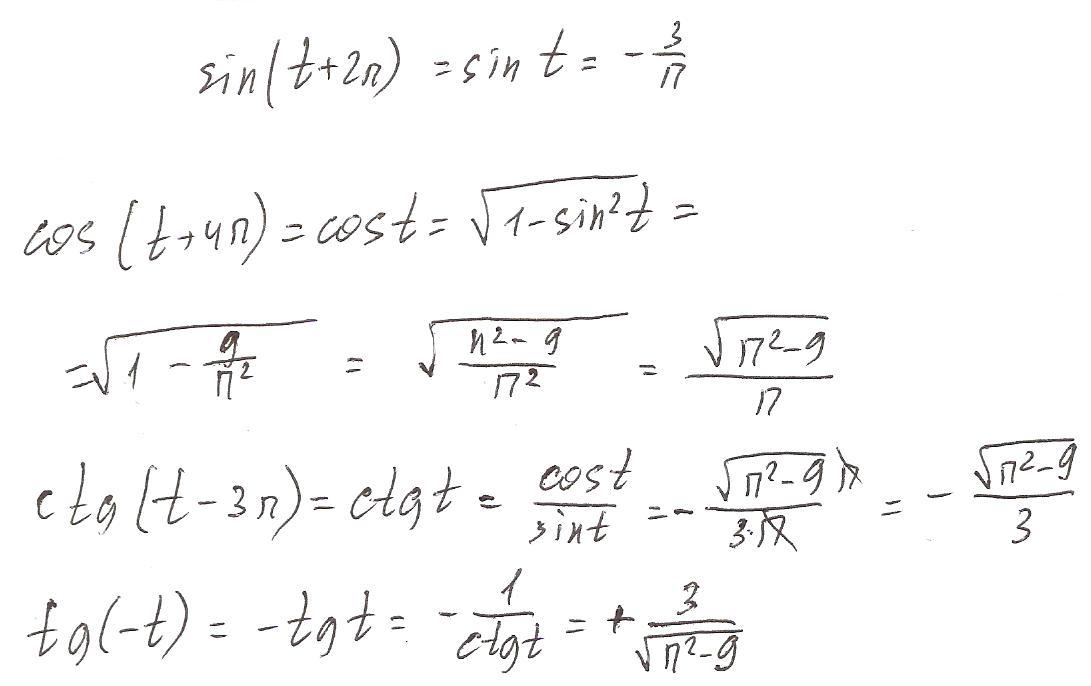 sin(t+2π) = sin t = - 3/π
cos(t+4π) = cos t = √(1-sin²t) =
= √(1 - 9/π²) = √((π²-9)/π²) = √(π²-9)/π
ctg(t-3π) = ctg t = cos t/sin t = - √(π²-9) π/(3·π) = - √(π²-9)/3
tg(-t) = -tg t = - 1/ctg t = + 3/√(π²-9)